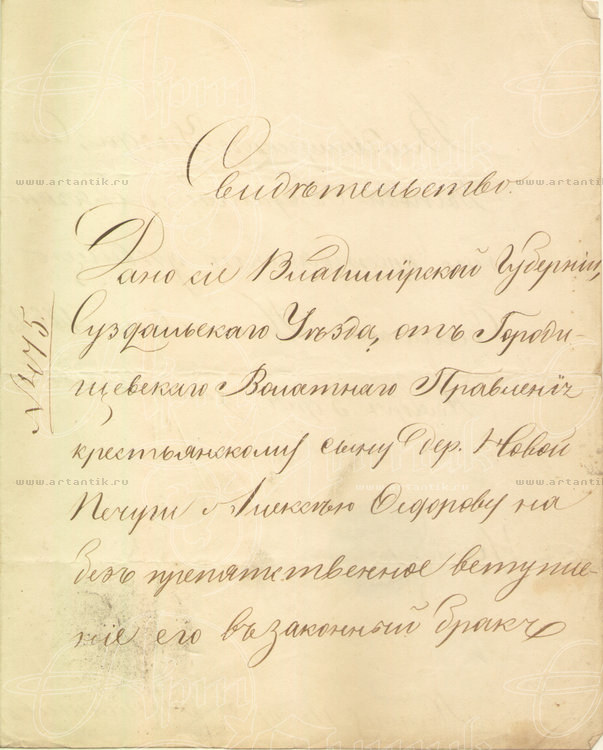 Свидѣтельство.
Дано сіе Владимірской Губерніи,
Суздальскаго Уѣзда, отъ Городи-
щевскаго Волостнаго Правленія
крестьянскому сыну дер. Новой
Печуги Алексѣю Ѳедорову на
безъ препятственное вступле-
ніе его въ законный бракъ
www.artantik.ru